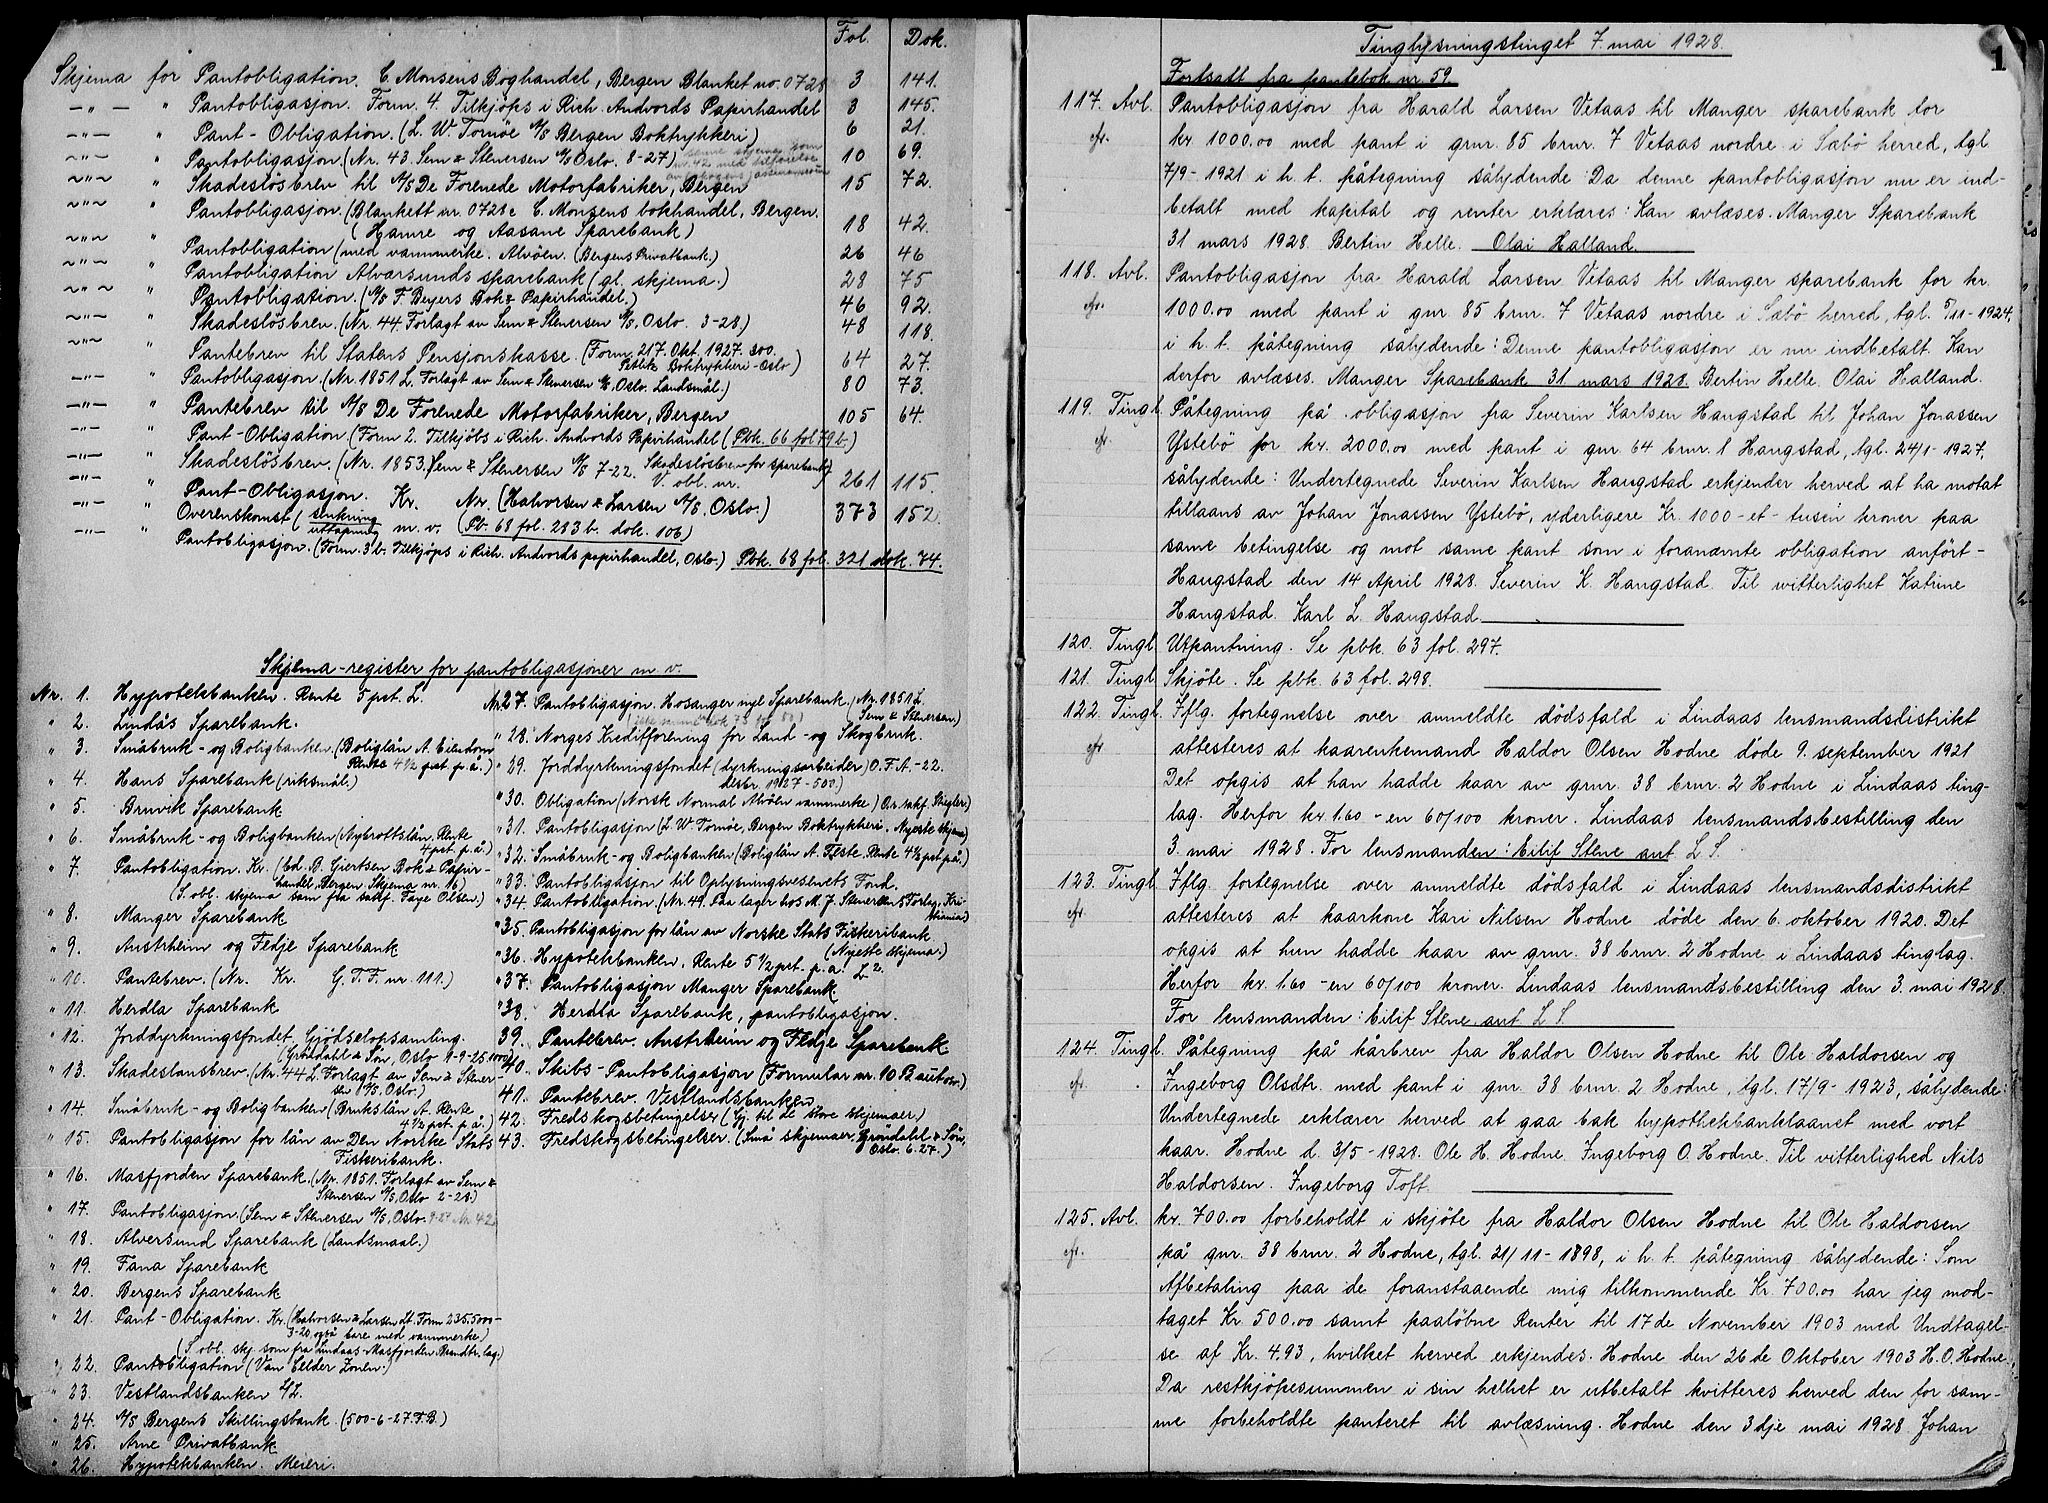 Fol. Dok.
Skjema for Pantobligation. C. Monsens Boghandel, Bergen Blanket no. 0721 3 141.
—„— „ Pantobligasjon. Form. 4. Tilkjöps i Rich. Andvords Papirhandel 3 145.
—„— „ Pant-Obligation. (L. W. Tornöe A/S Bergen Boktrykkeri) 6 21.
~„~ „ Pantobligasjon. (Nr. 43. Sem & Stenersen A/S Oslo. 8-27) 10 69.
~„~ „ Skadeslösbrev til A/S De Forenede Motorfabriker, Bergen 15 72.
~„~ „ Pantobligasjon. (Blankett nr. 0721c C. Monsens bokhandel, Bergen.
(Hamre og Aasane Sparebank) 18 42.
~„~ „ Pantobligation (med vannmerke. Alvöen. (Bergens Privatbank.) 26 46
~„~ „ Pantobligation Alvorsunds sparebank (gl. skjema.) 28 75
~„~ „ Pantobligation. (A/S F. Beyers Bok & Papirhandel.) 46 92.
~„~ „ Skadeslösbrev. (Nr. 44. Forlagt av Sem & Stenersen A/S, Oslo. 3-28.) 48 118.
~„~ „ Pantebrev til Statens Pensjonskasse. (Form. 217. Okt. 1927. 300.
Petlitz Boktrykkeri-Oslo) 64 27.
—„— „ Pantobligasjon. (Nr. 1851 L. Forlagt av Sem & Stenersen A/S, Oslo. Landsmål.) 80 73.
—„— „ Pantebrev til A/S De Forenede Motorfabriker, Bergen 105 64.
—„— „ Pant-Obligation. (Form 2. Tilkjöbs i Rich. Andvords Papirhandel (Pbk. 66 fol 79 b.)
—„— „ Skadeslösbrev. (Nr. 1853. Sem & Stenersen A/S 7-22. Skadeslösbrev for sparebank)
V. obl. nr. 261 115.
—„— „ Pant-Obligasjon. Kr. Nr. (Halvorsen & Larsen A/S. Oslo.) 373 152.
—„— „ Overenskomst (senkning
uttapning m. v. (Pb. 68 fol. 283 b. dok. 106)
—„— „ Pantobligasjon. (Form. 3 b. Tilkjöps i Rich. Andvords papirhandel, Oslo.) Pbk. 68 fol. 321 dok. 74.
Skjema-register for pantobligasjoner m v.
Nr. 1. Hypotekbanken. Rente 5 pst. L.
„ 2. Lindås Sparebank.
„ 3. Småbruk- og Boligbanken. (Boliglån A. Eiendom
Rente 4½ pst p. å.)
„ 4. Hans Sparebank (riksmål.)
„ 5. Bruvik Sparebank
„ 6. Småbruk- og Boligbanken (Nybrottslån. Rente
4 pst. p. å.)
„ 7. Pantobligation. Kr. (Ed. B. Giertsen Bok & Papir-
handel, Bergen. Skjema nr. 16)
(S. obl. skjema som fra sakf. Faye Olsen.)
„ 8. Manger Sparebank
„ 9. Austrheim og Fedje Sparebank
„ 10. Pantebrev. (Nr. Kr. G. T. F. nr. 111.)
„ 11. Herdla Sparebank
„ 12. Jorddyrkningsfondet, Gjödselopsamling.
(Gröndahl & Sön, Oslo 9-9-25. 1000)
„ 13. Skadeslausbrev. (Nr. 44 L. Forlagt av Sem & Stener-
sen A/S, Oslo.)
„ 14. Småbruk- og Boligbanken (Brukslån A. Rente
4½ pst. p. å.)
„ 15. Pantobligasjon for lån av Den Norske Stats
Fiskeribank.
„ 16. Masfjorden Sparebank. (Nr. 1851. Forlagt av Sem &
Stenersen A/S, Oslo 2-28.)
„ 17. Pantobligasjon. (Sem & Stenersen A/S, Oslo. 9-27 Nr. 42
„ 18. Alversund Sparebank (Landsmaal.)
„ 19. Fana Sparebank
„ 20. Bergens Sparebank
„ 21. Pant-Obligation. Kr. (Halvorsen & Larsen Lt. Form 235. 5000-
3-20, også bare med vannmerke)
(S. obl. skj. som fra Lindaas-Masfjorden Brandtr. lag.)
„ 22. Pantobligation (Van Gelder Zonen.)
„ 23. Vestlandsbanken L/L.
„ 24. A/S Bergens Skillingsbank. (500-6-27. F. B.)
„ 25. Arne Privatbank
„ 26. Hypotekbanken. Meieri.
Nr. 27. Pantobligasjon. Hosanger nye Sparebank. (Nr. 1851 L.
Sem & Stenersen)
„ 28. Norges Kredittforening for Land- og Skogbruk.
„ 29. Jorddyrkningsfondet (dyrkningsarbeider) O. F. A.-22.
desbr. 1927-500.)
„ 30. Obligation (Norsk Normal Alvöen vannmerke) O.r. sakf. Stigler)
„ 31. Pantobligasjon (L. W. Tornöe, Bergen Boktrykkeri. Nyeste skjema)
„ 32. Småbruk- og Boligbanken (Boliglån A. Feste. Rente 4½ pst p. å.)
„ 33. Pantobligasjon til Oplysningsvesenets Fond.
„ 34. Pantobligation. (Nr. 49. Paa lager hos M. J. Stenersens Forlag, Kri-
stiania)
„ 35. Pantobligasjon for lån av Norske Stats Fiskeribank
(Nyeste skjema.)
„ 36. Hypotekbanken, Rente 5½ pst. p. a. L 2.
„ 37. Pantobligasjon Manger Sparebank
„ 38. Herdla Sparebank, pantobligasjon.
39. Pantebrev. Austrheim og Fedje Sparebank
40. Skibs-Pantobligasjon (Formular nr. 10 B autor.)
41. Pantebrev. Vestlandsbanken
42. Fredskogsbetingelser (Gj. til de store skjemaer.)
43. Fredskogsbetingelser. (Små skjemaer. Gröndahl & Sön,
Oslo. 6.27.)
1
Tinglysningstinget 7. mai 1928.
Fortsatt fra pantebok nr. 59.
117. Avl. Pantobligasjon fra Harald Larsen Vetaas til Manger sparebank for
efr. kr. 1000.00 med pant i gnr. 85 brnr. 7 Vetaas nordre i Sæbö herred, tgl.
7/9-1921 i h. t. påtegning sålydende: Da denne pantobligasjon nu er ind-
betalt med kapital og renter erklæres: Kan avlæses. Manger Sparebank
31 mars 1928. Bertin Helle. Olai Halland.
118. Avl. Pantobligasjon fra Harald Larsen Vetaas til Manger sparebank for kr.
efr. 1000.00 med pant i gnr 85 brnr. 7 Vetaas nordre i Sæbö herred, tgl. 5/11-1924,
i h. t. påtegning sålydende: Denne pantobligasjon er nu indbetalt. Kan
derfor avlæses. Manger Sparebank 31 mars 1928. Bertin Helle. Olai Halland.
119. Tingl. Påtegning på obligasjon fra Severin Karlsen Hangstad til Johan Jonassen
efr. Ystebö for kr. 2000.00 med pant i gnr 64 brnr. 1 Hangstad, tgl. 24/1-1927,
sålydende: Undertegnede Severin Karlsen Hangstad erkjender herved at ha motat
tillaans av Johan Jonassen Ystebö, yderligere Kr. 1000-et-tusen kroner paa
same betingelse og mot same pant som i forannæmte obligation anfört-
Hangstad den 14 April 1928. Severin K. Hangstad. Til witterlighet Katrine
Hangstad. Karl L. Hangstad
120. Tingl. Utpantning. Se pbk. 63 fol. 297.
121. Tingl. Skjöte. Se pbk. 63 fol. 298.
122. Tingl. Iflg. fortegnelse over anmeldte dödsfald i Lindaas lensmandsdistrikt
efr attesteres at kaarenkemand Haldor Olsen Hodne döde 9. september 1921
Det opgis at han hadde kaar av gnr. 38 brnr. 2 Hodne i Lindaas ting-
lag. Herfor kr. 1.60 - en 60/100 kroner. Lindaas lensmandsbestilling den
3. mai 1928. For lensmanden: Eilif Stene aut L S.
123. Tingl Iflg. fortegnelse over anmeldte dödsfald i Lindaas lensmandsdistrikt
efr. attesteres at kaarkone Kari Nilsen Hodne döde den 6. oktober 1920. Det
opgis at hun hadde kaar av gnr. 38 brnr. 2 Hodne i Lindaas tinglag.
Herfor kr. 1.60 - en 60/100 kroner. Lindaas lensmandsbestilling den 3. mai 1928.
For lensmanden: Eilif Stene aut L S.
124. Tingl. Påtegning på kårbrev fra Haldor Olsen Hodne til Ole Haldorsen og
efr. Ingeborg Olsdtr. med pant i gnr. 38 brnr. 2 Hodne, tgl. 17/9-1923, sålydende:
Undertegnede erklærer herved at gaa bak hypothekbanklaanet med vort
kaar. Hodne d. 3/5-1928. Ole H. Hodne. Ingeborg O. Hodne. Til vitterlighed Nils
Haldorsen. Ingeborg Toft.
125. Avl. kr. 700.00 forbeholdt i skjöte fra Haldor Olsen Hodne til Ole Haldorsen
efr. på gnr. 38 brnr. 2 Hodne, tgl. 21/11-1898, i h. t. påtegning sålydende: Som
Afbetaling paa de foranstaaende mig tilkommende Kr. 700.00 har jeg mod-
taget Kr. 500.00 samt paalöbne Renter til 17de November 1903 med Undtagel-
se af Kr. 4.93, hvilket herved erkjendes. Hodne den 26de Oktober 1903 H. O. Hodne
Da restkjöpesummen i sin helhet er utbetalt kvitteres herved den for sam-
me forbeholdte panteret til avlæsning. Hodne den 3dje mai 1928 Johan